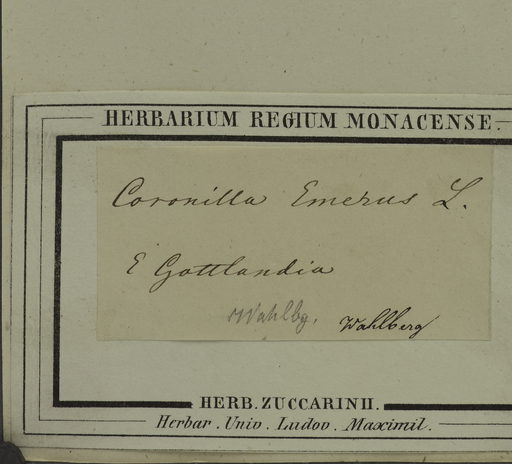 HERBARIUM REGIUM MONACENSE.
Coronilla Emerus L.
E Gottlandia
Wahlbg. Wahlberg
HERB. ZUCCARINII.
Herbar. Univ. Ludov. Maximil.